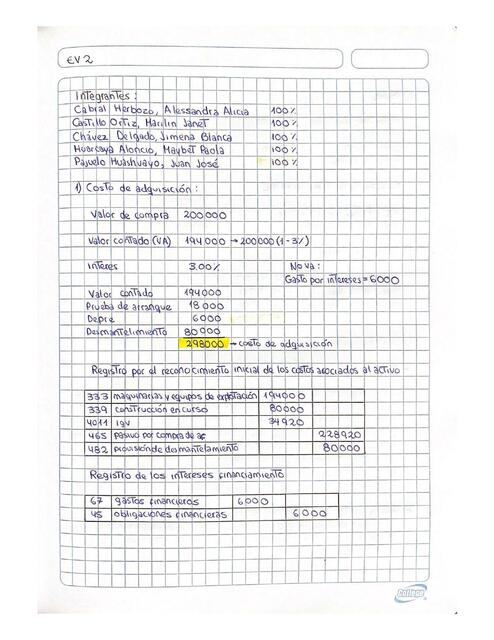 EV 2
Integrantes :
Cabral Herbozo, Alessandra Alicia 100%
Castillo Ortiz, Marilin Janet 100%
Chávez Delgado, Jimena Blanca 100%
Huarcaya Aloncio, Maybet Paola 100%
Pajuelo Huashuayo, Juan José 100%
1) Costo de adquisición :
Valor de compra 200000
Valor contado (VA) 194000 → 200000 (1-3%)
Interes 3.00% No va :
Gasto por intereses = 6000
Valor contado 194000
Prueba de arranque 18000
Depre 6000
Desmantelimiento 80000
298000 → costo de adquisición
Registro por el reconocimiento inicial de los costos asociados al activo
333 maquinarias y equipos de explotación 194000
339 construcción en curso 80000
4011 igv 34920
465 pasivo por compra de ac 228920
482 provisión de desmantelamiento 80000
Registro de los intereses financiamiento
67 gastos financieros 6000
45 obligaciones financieras 6000
College